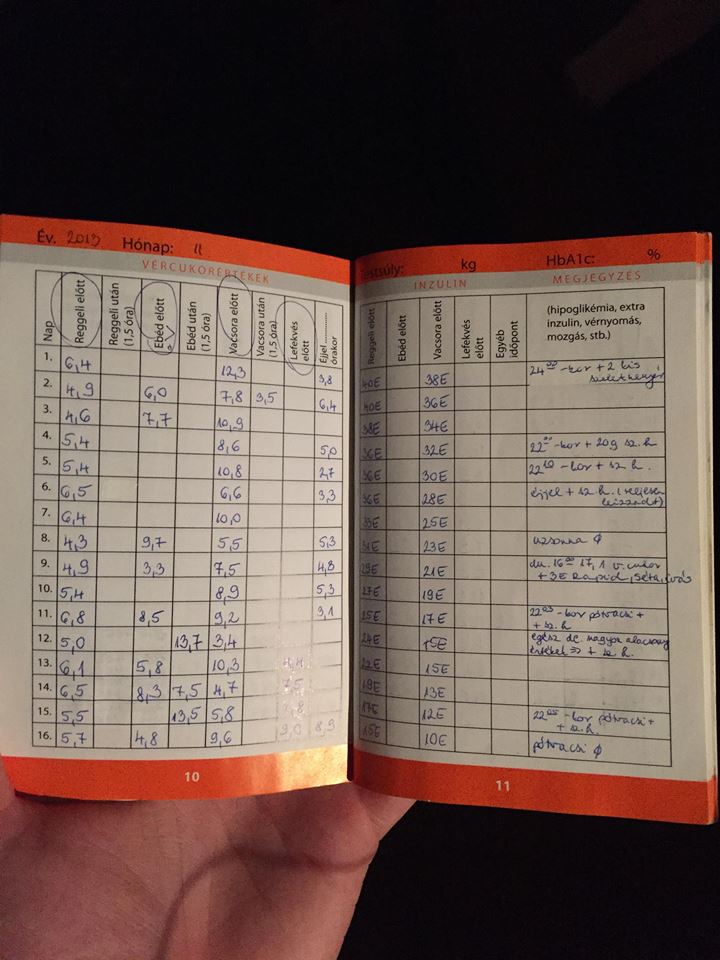 Év. 2013 Hónap: 11
VÉRCUKORÉRTÉKEK
Nap Reggeli előtt Reggeli után (1,5 óra) Ebéd előtt Ebéd után (1,5 óra) Vacsora előtt Vacsora után (1,5 óra) Lefekvés előtt Éjjel órakor
1. 6,4 12,3 3,8
2. 4,9 6,0 7,8 3,5 6,4
3. 4,6 7,7 10,9
4. 5,4 8,6 5,0
5. 5,4 10,8 2,7
6. 6,5 6,6 3,3
7. 6,4 10,0
8. 4,3 9,7 5,5 5,3
9. 4,9 3,3 7,5 4,8
10. 5,4 8,9 5,3
11. 6,8 8,5 9,2
12. 5,0 13,7 3,4
13. 6,1 5,8 10,3
14. 6,5 8,3 7,5 4,7
15. 5,5 13,5 5,8
16. 5,7 4,8 9,6 9,0 8,9
10
Testsúly: kg HbA1c: %
INZULIN MEGJEGYZÉS
Reggeli előtt Ebéd előtt Vacsora előtt Lefekvés előtt Egyéb időpont (hipoglikémia, extra
inzulin, vérnyomás,
mozgás, stb.)
40E 38E 24⁰⁰-kor + 2 kis
szelet kenyér
40E 36E
38E 34E
36E 32E + 20g sz.h
36E 30E 22¹⁰-kor + sz.h.
36E 28E éjjel + sz.h. (teljesen
33E 25E
31E 23E uzsonna ϕ
29E 21E du. 16⁰⁰ 17,1 v.cukor
+ 3E Rapid, séta, ivás
27E 19E
25E 17E 22⁰³-kor pótvacsi +
+ sz.h.
24E 15E egész de. nagyon alacsony
értékek => + sz.h.
22E 15E
19E 13E
17E 12E 22⁰⁵-kor pótvacsi +
+ sz.h.
15E 10E pótvacsi ϕ
11